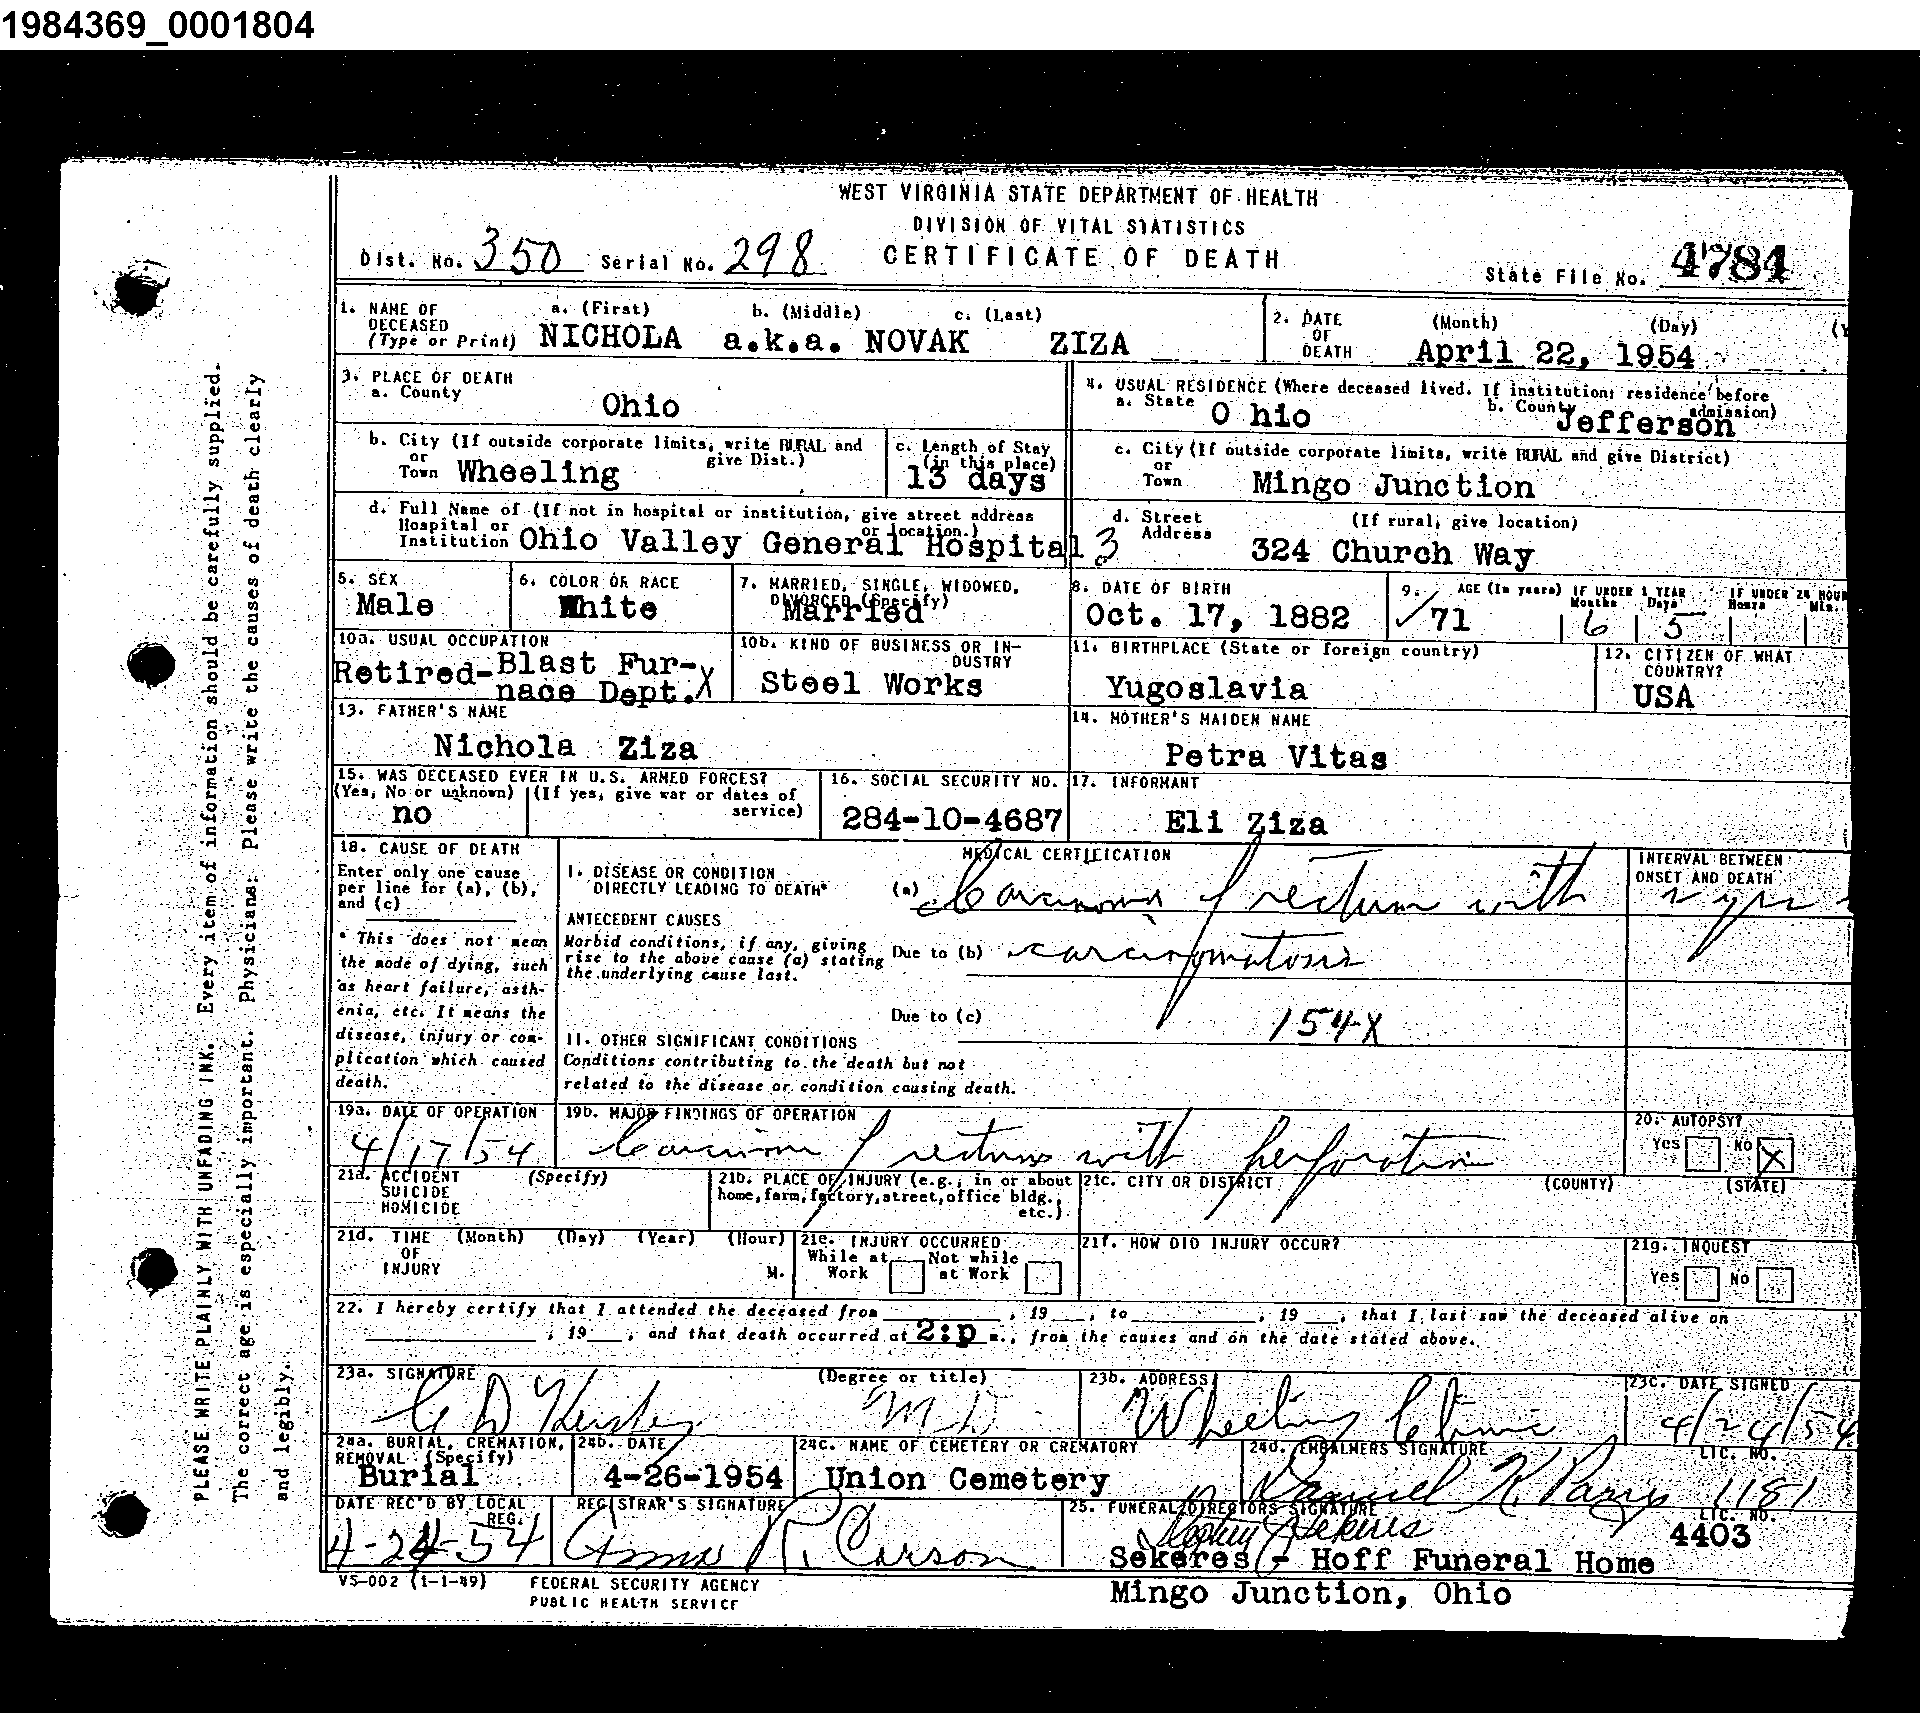 1984369_0001804
WEST VIRGINIA STATE DEPARTMENT OF HEALTH
DIVISION OF VITAL STATISTICS
CERTIFICATE OF DEATH
Dist. No. 350 Serial No. 298
State File No. 4784
1. NAME OF DECEASED (Type or Print) a. (First) b. (Middle) c. (Last)
NICHOLA a.k.a. NOVAK ZIZA
2. DATE OF DEATH (Month) (Day)
April 22, 1954
3. PLACE OF DEATH
a. County
Ohio
4. USUAL RESIDENCE (Where deceased lived. If institution; residence before admission)
a. State O hio b. County Jefferson
b. City (If outside corporate limits, write RURAL and give Dist.)
or Town Wheeling
c. Length of Stay (in this place)
13 days
c. City (If outside corporate limits, write RURAL and give District)
or Town Mingo Junction
d. Full Name of (If not in hospital or institution, give street address or location.)
Hospital or Institution Ohio Valley General Hospital 3
d. Street Address (If rural, give location)
324 Church Way
5. SEX
Male
6. COLOR OR RACE
White
7. MARRIED, SINGLE, WIDOWED, DIVORCED (Specify)
Married
8. DATE OF BIRTH
Oct. 17, 1882
9. AGE (In years) IF UNDER 1 YEAR IF UNDER 24 HOUR
Months Days Hours Min.
71 6 5
10a. USUAL OCCUPATION
Retired-Blast Fur-
nace Dept. X
10b. KIND OF BUSINESS OR INDUSTRY
Steel Works
11. BIRTHPLACE (State or foreign country)
Yugoslavia
12. CITIZEN OF WHAT COUNTRY?
USA
13. FATHER'S NAME
Nichola Ziza
14. MOTHER'S MAIDEN NAME
Petra Vitas
15. WAS DECEASED EVER IN U.S. ARMED FORCES?
(Yes, No or unknown) (If yes, give war or dates of service)
no
16. SOCIAL SECURITY NO.
284-10-4687
17. INFORMANT
Eli Ziza
18. CAUSE OF DEATH
Enter only one cause
per line for (a), (b),
and (c)
* This does not mean
the mode of dying, such
as heart failure, asth-
enia, etc. It means the
disease, injury or com-
plication which caused
death.
MEDICAL CERTIFICATION
I. DISEASE OR CONDITION
DIRECTLY LEADING TO DEATH*
(a) Carcinoma of rectum with
ANTECEDENT CAUSES
Morbid conditions, if any, giving
rise to the above cause (a) stating
the underlying cause last.
Due to (b) carcinomatosis
Due to (c)
154X
II. OTHER SIGNIFICANT CONDITIONS
Conditions contributing to the death but not
related to the disease or condition causing death.
INTERVAL BETWEEN
ONSET AND DEATH
19a. DATE OF OPERATION
4/17/54
19b. MAJOR FINDINGS OF OPERATION
Carcinoma of rectum with perforation
20. AUTOPSY?
Yes No X
21a. ACCIDENT SUICIDE HOMICIDE (Specify)
21b. PLACE OF INJURY (e.g., in or about
home, farm, factory, street, office bldg.,
etc.)
21c. CITY OR DISTRICT (COUNTY) (STATE)
21d. TIME OF INJURY (Month) (Day) (Year) (Hour) M.
21e. INJURY OCCURRED
While at Work Not while at Work
21f. HOW DID INJURY OCCUR?
21g. INQUEST
Yes No
22. I hereby certify that I attended the deceased from , 19 , to , 19 , that I last saw the deceased alive on
, 19 , and that death occurred at 2:p m., from the causes and on the date stated above.
23a. SIGNATURE (Degree or title)
M.D.
23b. ADDRESS
Wheeling Clinic
23c. DATE SIGNED
4/24/54
24a. BURIAL, CREMATION, REMOVAL (Specify)
Burial
24b. DATE
4-26-1954
24c. NAME OF CEMETERY OR CREMATORY
Union Cemetery
24d. EMBALMERS SIGNATURE LIC. NO.
Daniel K. Parry 1181
DATE REC'D BY LOCAL REG.
4-24-54
REGISTRAR'S SIGNATURE
Anna R. Carson
25. FUNERAL DIRECTORS SIGNATURE LIC. NO.
Sekeres 4403
Sekeres - Hoff Funeral Home
Mingo Junction, Ohio
VS-002 (1-1-49)
FEDERAL SECURITY AGENCY
PUBLIC HEALTH SERVICE
PLEASE WRITE PLAINLY WITH UNFADING INK. Every item of information should be carefully supplied.
The correct age is especially important. Physicians: Please write the causes of death clearly
and legibly.